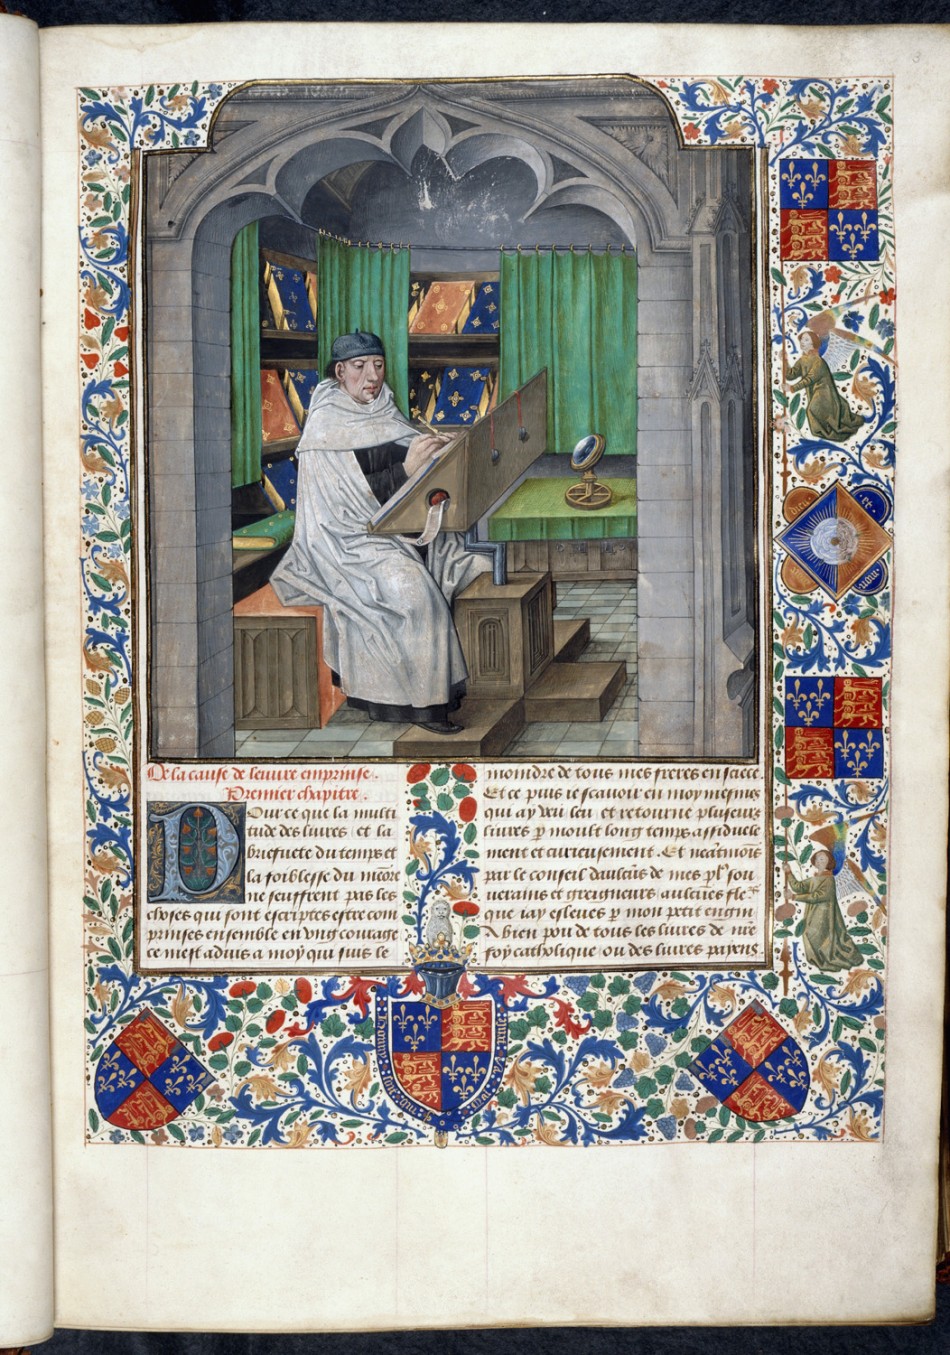 De la cause de leuure emprinse.
Premier chapitre.
Pour ce que la multi
tude des liures et la
briefuete du temps et
la foiblesse du memoire
ne seuffrent pas les
choses qui sont escriptes estre com
prinses ensemble en vng courage
ce mest aduis a moy qui suis le
moindre de tous mes freres en sciēce.
Et ce puis ie scauoir en moy mesmes
qui ay veu leu et retourne pluseurs
liures p moult long temps assiduele
ment et curieusement. Et neātmoīs
par le conseil daulcūs de mes pl9 sou
uerains et greigneurs aulcūes fleʳˢ
que iay esleues p mon petit engin
A bien pou de tous les liures de nr̄e
foy catholique ou des liures paiens
dieu et mon